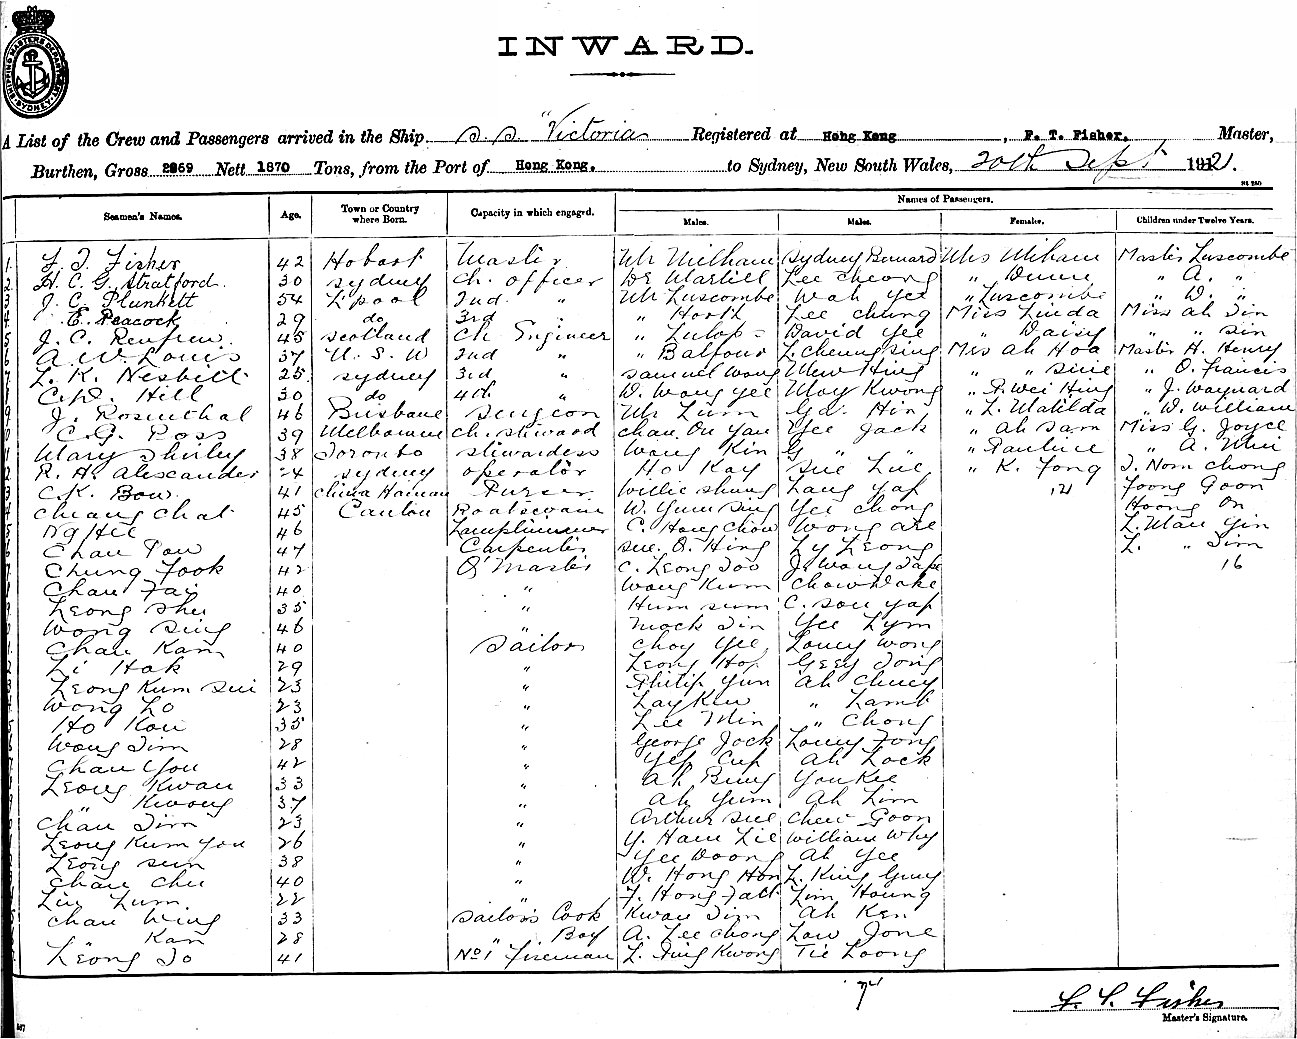 SHIPPING MASTERS DEPARTMENT SYDNEY
INWARD.
A List of the Crew and Passengers arrived in the Ship S.S. "Victoria Registered at Hong Kong, F. T. Fisher. Master,
Burthen, Gross 2969 Nett 1870 Tons, from the Port of Hong Kong. to Sydney, New South Wales, 20th Sept 1912.
Names of Passengers.
Seamen's Names. Age. Town or Country where Born. Capacity in which engaged. Males. Males. Females. Children under Twelve Years.
1 F. T. Fisher 42 Hobart Master Mr Milham Sydney Bernard Mrs Milham Master Luscombe
2 H. C. G. Stratford. 30 Sydney Ch. Officer Dr Lee Cheong " " A. "
3 J. C. Plunkett 54 L'pool 2nd " Mr Luscombe Wah Yee " Luscombe " W. "
4 E. Peacock 29 do 3rd " " Lee Chung Miss Linda Miss Ah Sin
5 J. C. Renfrew. 45 Scotland Ch Engineer " David Yee " Daisy " " Sin
6 A. W. Louis 37 N. S. W 2nd " " Balfour L. Cheung Sing Mrs Ah Hoa Master H. Henry
7 L. K. Nesbitt 25 Sydney 3rd " Samuel Wong Mew Hing " " Sine " O. Francis
Hill 30 do 4th " W. Wong Yee May Kwong " Wei Hing " J. Waynard
9 J. Rosenthal 46 Brisbane Surgeon Mr Lum Hin " L. Matilda " W. William
C. G. Ross 39 Melbourne Ch. Steward Chan On Yau Yee Jack " Ah Sam Miss G. Joyce
1 Mary Shirley 38 Toronto Stewardess Wong Kin G " " " Pauline " A.
2 R. H. Alexander 24 Sydney Operator Ho Kay Sue Lue " K. Fong J. Nom Chong
3 C. K. Bow. 41 China Hainan Purser Willie Shung Lang Yap 12 Foong Goon
Chiang Chat 45 Canton Boatswain W. Yum Sing Yee Chong Hoong On
Ng Hee 46 Lamptrimmer C. Hong Chow Wong L. Man Yin
Chan Pow 47 Carpenter Sue. O. Hing Ly Leong L. " Sim
Chung Fook 42 Q' Masters C. Leong Soo J. Wong 16
Chan Fai 40 " Wong Kum Chow Wake
Leong Shu 35 " Hum Sum C. Sou Yap
Wong Sing 46 " Mock Sin Yee Lym
Chan Kam 40 Sailor Choy Yee Louey Wong
Li Hok 29 " Leong Hop Geey Dong
Leong Kum Sui 23 " Philip Yun Ah Chuey
Wong Lo 23 " Lay Kew " Lamb
Ho Kau 35 " Lee Min " Chong
Wong Sim 28 " George Jock Louey Fong
Chan You 42 " Yep Cup Ah Lock
Leong Kwan 33 " Ah Bing You Kee
" Kwong 37 " Ah Yum Ah Lim
Chan Sim 23 " Arthur Sue Chew Goon
Leong Kum You 26 " Y. Ham Lie William Why
Leong Sun 38 " Yee Doong Ah Yee
Chan Chu 40 " W. Hong Hon L. King Guey
Liu Lum. 22 " F. Hong Fatt Lim Houng
Chan Wing 33 Sailors Cook Kwan Sim Ah Ken
" Kan 28 " Boy A. Lee Chong Low Jone
Leong So 41 No 1 Fireman L. Hing Kwong Tie Loong
F. T. Fisher
Master's Signature.